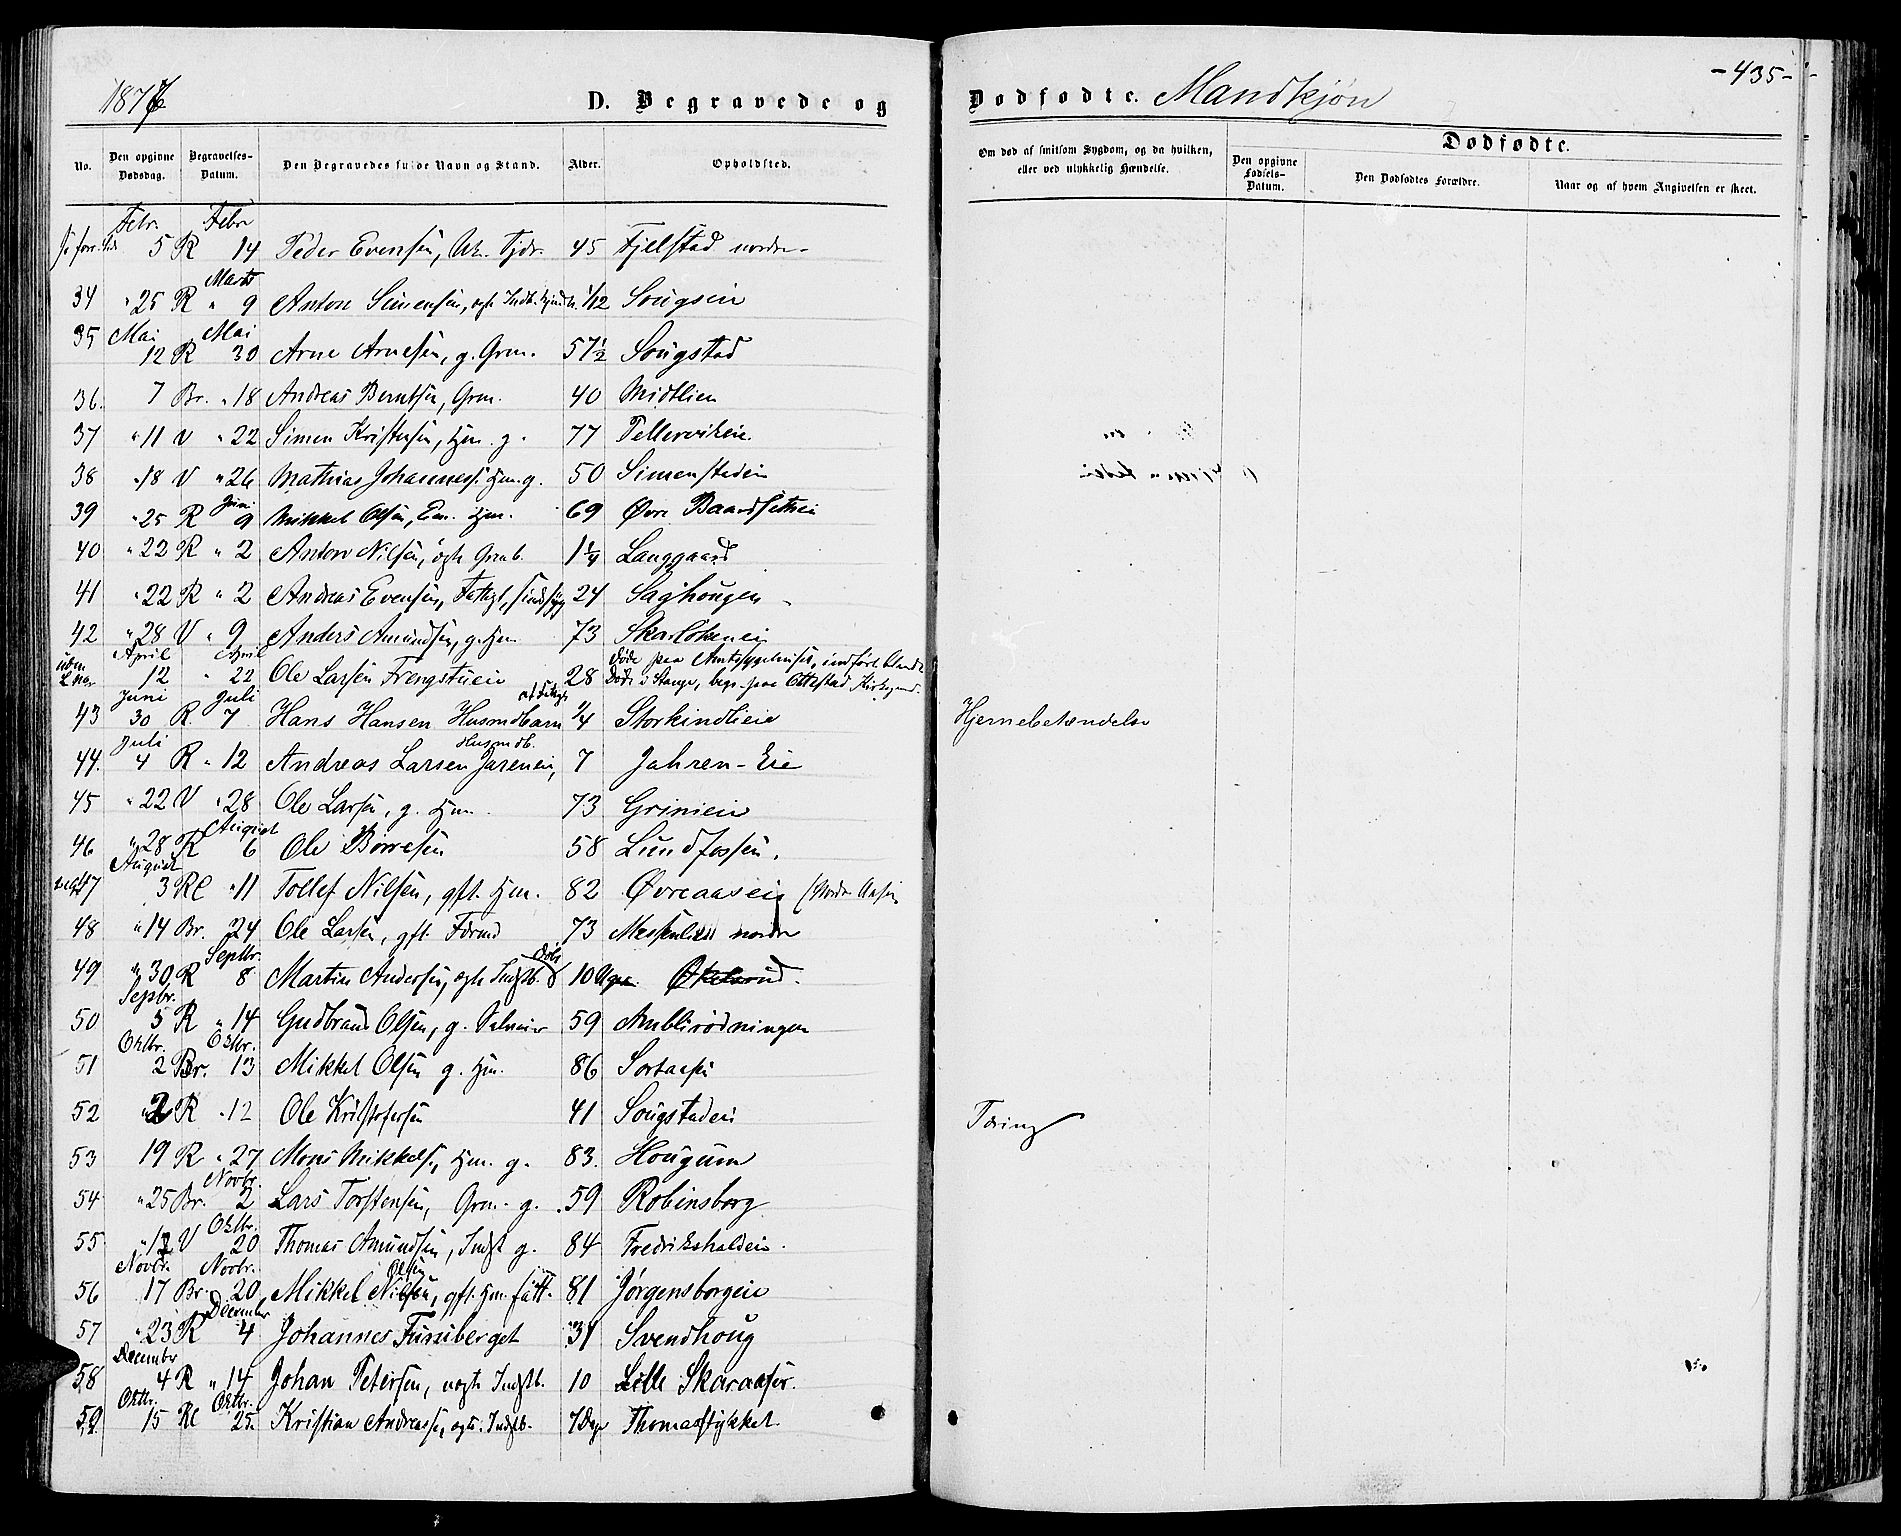 1876 D. Begravede og Dødfødte. Mandkjøn -435-
No. Den opgivne Dødsdag. Begravelses-Datum. Den Begravedes fulde Navn og Stand. Alder. Opholdsted. Om død af smitsom Sygdom, og da hvilken, eller ved ulykkelig Hændelse. Dødfødte. Den opgivne Fødsels-Datum. Den Dødfødtes Forældre. Naar og af hvem Angivelsen er skeet.
Febr. Febr
5 R 14 Peder Evensen, 45 Fjelstad nordre
Marts
34 " 25 R " 9 Anton Simensen, 1/12 Sougsein
35 Mai Mai
12 R 30 Arne Arnesen, g. Grm. 57½ Sougstad
36. 7 Br. " 18 Andreas Berntsen, Grm. 40 Midtlien
37 " 11 V " 22 Simen Kristensen, Hjm. g. 77 Tellervikeie.
38 " 18 V " 26 Mathias Johanness. Hjm. g. 50 Simenstadein
Juni
39 " 25 R 9 Mikkel Olsen, Em. Hjm. 69 Øvre Baardsethein
40 " 22 R " 2 Anton Nilsen, ægte Grmb. 1¼ Langgaard
41 " 22 R " 2 Andreas Evensen, Fattigl., sindssyg 24 Saghougen
42 " 28 V " 9 Anders Amundsen, g. Hjm. 73
April April Døde paa Amtssygehuset, indført blandt
uden L.no. 12 " 22 Ole Larsen Frengstueie 28 Døde i Stange, begr. paa Ottestad Kirkegaard.
Juni Juli
43 30 R 7 Hans Hansen Husmdbarn ¼ Storkindlieie Hjernebetændelse
Juli Husmdb.
44. 4 R " 12 Andreas Larsen Jareneie, 7 Jahren-Eie
45 " 22 V " 28 Ole Larsen, g. Hjm. 73 Grinieie
August
46 " 28 R 6 Ole Børresen 58 Lundfossen.
August
47 3 Rl " 11 Tollef Nilsen, gft. Hjm. 82 Øvreaaseie (Nordre Aasen
48 " 14 Br. 24 Ole Larsen, gft. Førmd 73 Messenlien nordre
Septbr. døbt
49 " 30 R 8 Martin Andersen, ægte Indstb. 10 Uger. Økelsrud.
Septbr.
50 5 R " 14 Gudbrand Olsen, g. Selveier 59 Amblirødningen
Oktbr. Oktbr.
51 2 Br. 13 Mikkel Olsen g. Hjm. 86 Sortaasen
52 " 2 R " 12 Ole Kristofersen 41 Sougstadeie Tæring
53 19 R " 27 Mons Mikkels., Hjm. g. 83. Hougum
Novbr.
54 " 25 Br. 2 Lars Torstensen, Grm. g. 59 Robinsborg
Oktbr.
55 " 12 V 20 Thomas Amundsen, Indst g. 84 Fredrikshaldeie.
Novbr. Novbr. Olsen
56 17 Br. 20 Mikkel Nilsen, gft. Hjm. fatt. 81 Jørgensborgeie
December
57 " 23 R 4 Johannes Furuberget 31 Svendhoug
December
58 4 R " 14 Johan Petersen, uægte Indstb. 10 Lille Skaraasen.
Oktbr. Oktbr.
59 15 Rl 25. Kristian Andreassen, ægte. Indstb. 7 Dage Thomasstykket.